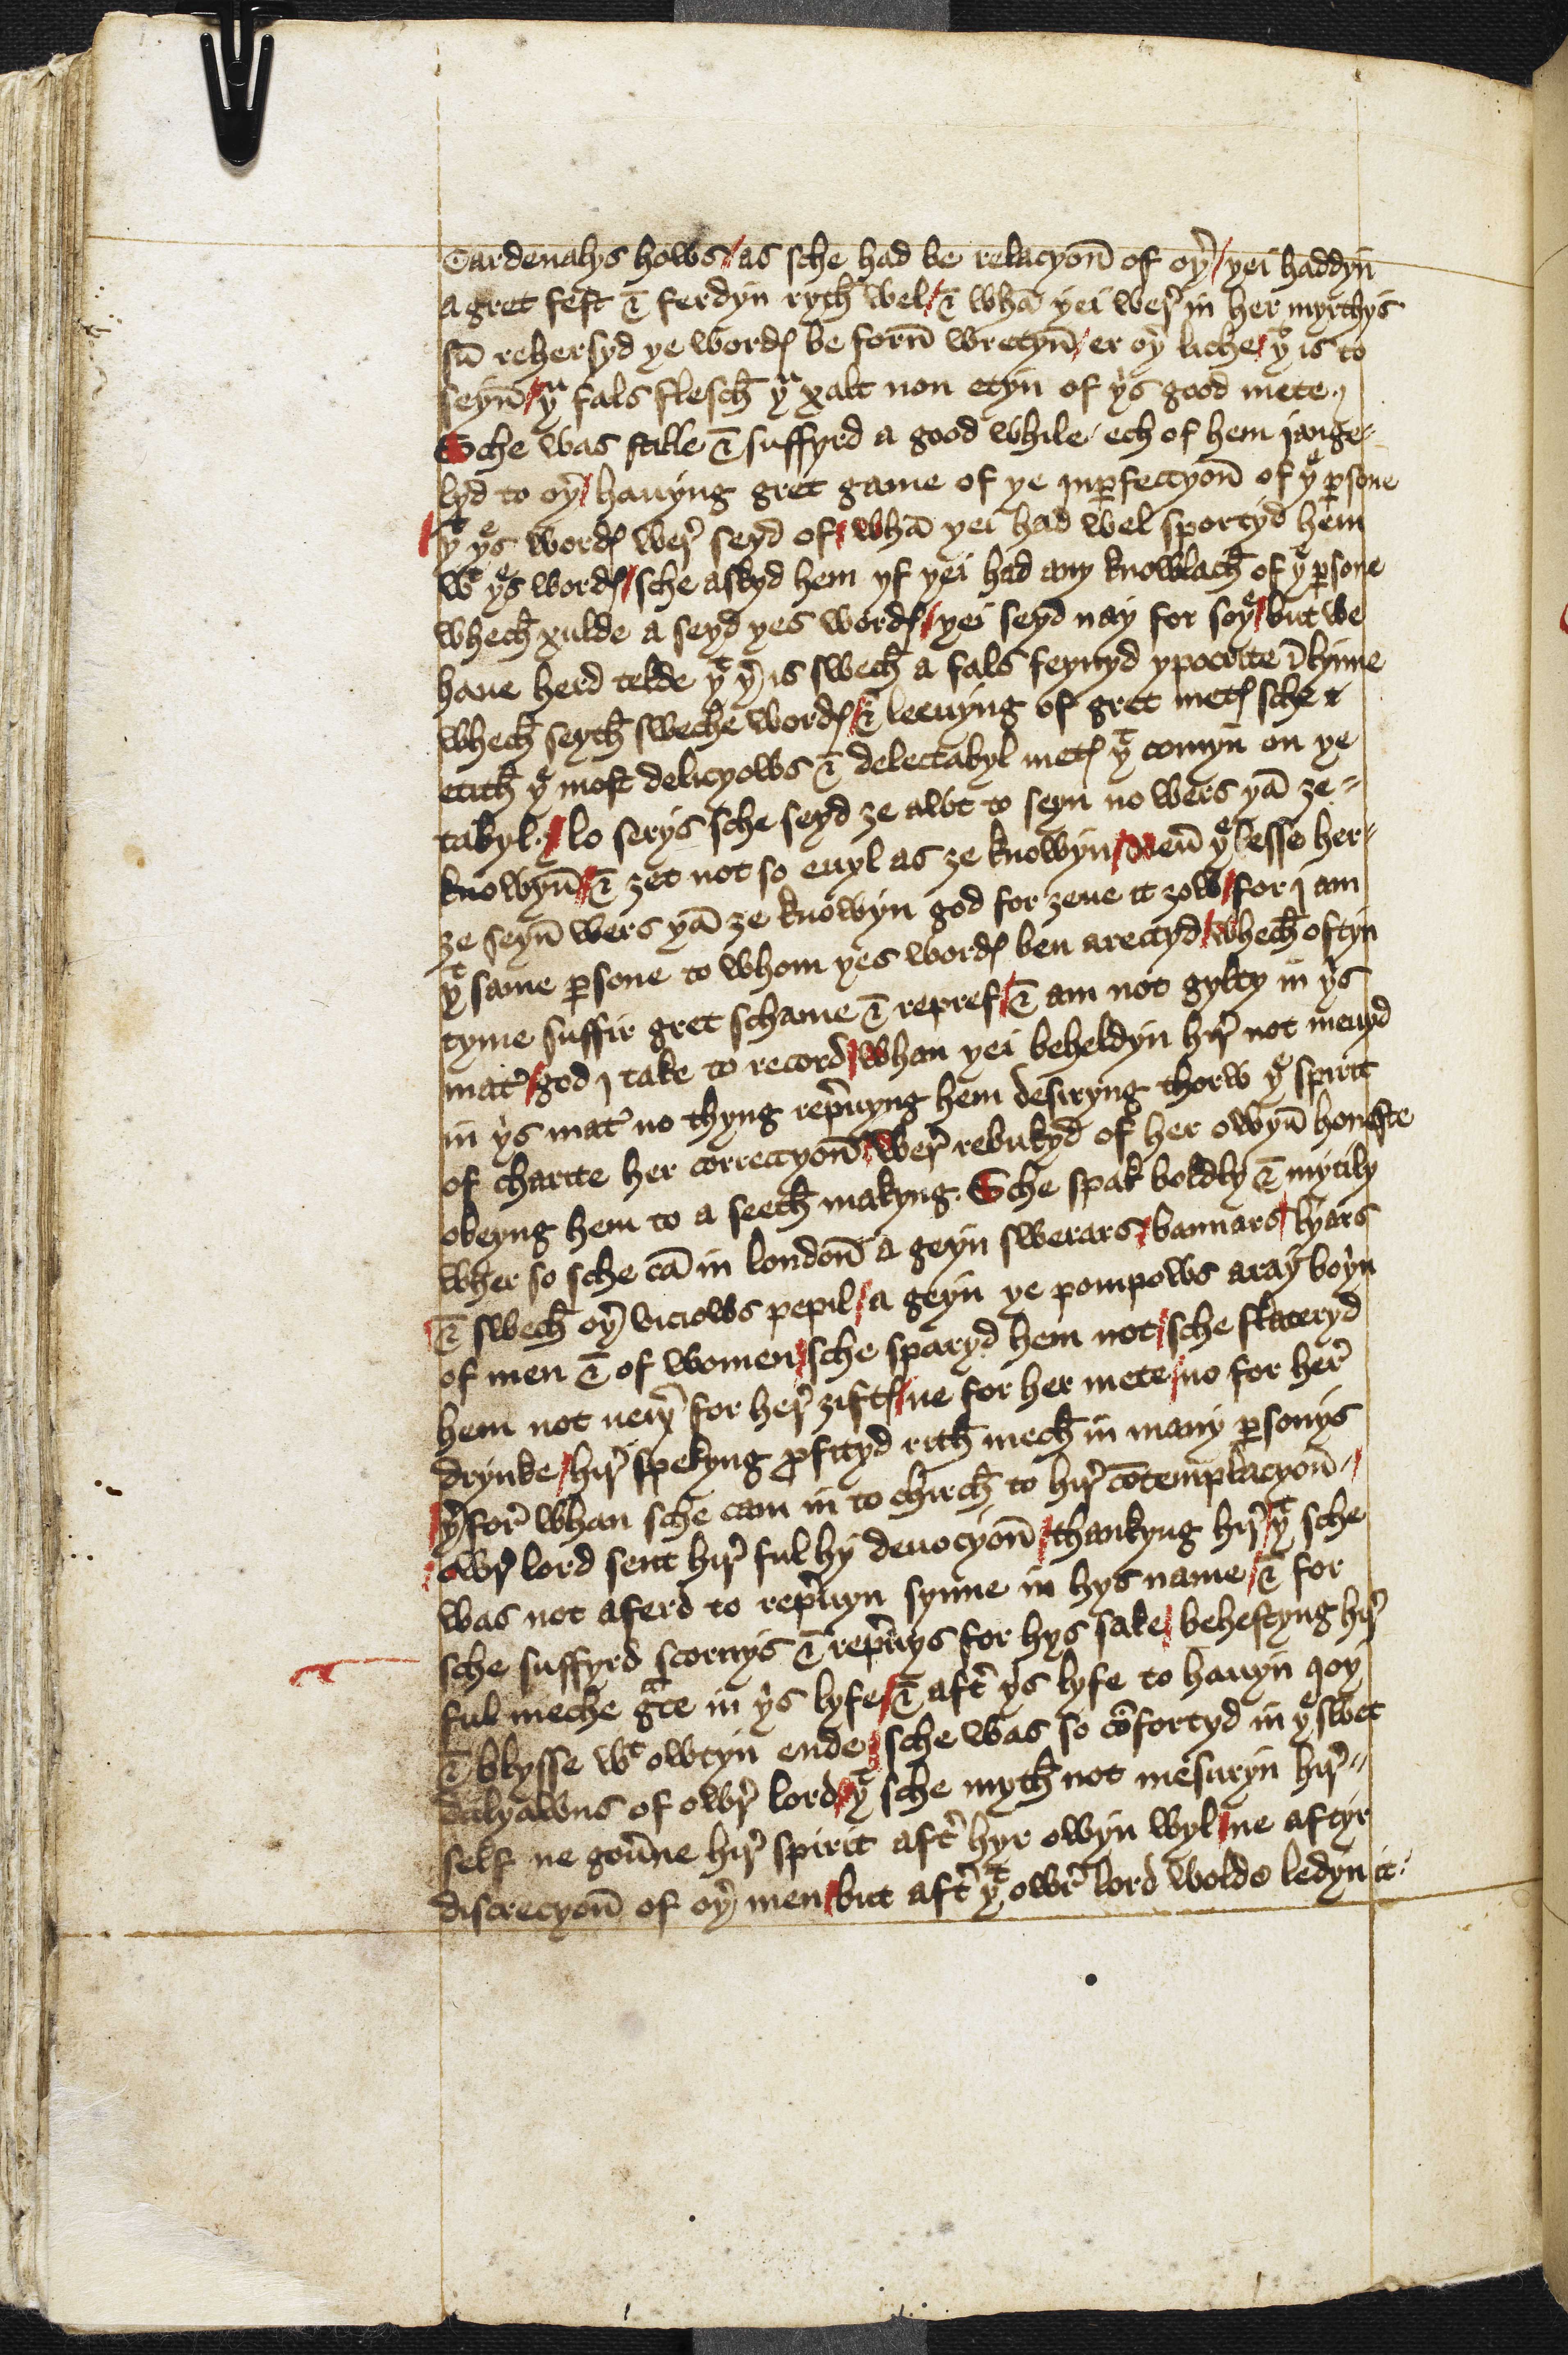 Cardenalys hows / as sche had be relacyoñ of oþr̛ / yei haddyñ
a gret fest & ferdyn rych̄ wel / & whā yei wer̛ in her myrthys
sū rehersyd ye wordꝭ be forñ wretyñ / er oyr̛ liche / yt is to
seyñ / yu fals flesch̄ yu xalt non etyn of yis good mete ./
Sche was stille & suffyrd a good while / ech of hem jange-
lyd to oyr̛ / hauyng gret game of ye inꝑfeccyoñ of ye ꝑsone
/ yt yes wordꝭ wer̛ seyd of / whā yei had wel sportyd hem
wt yes wordꝭ / sche askyd hem yf yei had any knowlach̄ of ye ꝑsone
whech̄ xulde a seyd yes wordꝭ / yei seyd nay for soye / but we
haue herd telde yt yr̛ is swech̄ a fals feynyd ypocrite ī lynne
whech̄ seyth̄ sweche wordꝭ / & leeuyng of gret metꝭ sche
etith̄ ye most delicyows & delectabyl metꝭ yt comyn on ye
tabyl ./ lo serys sche seyd ze awt to seyn no wers yā ze-
knowyñ / & zet not so euyl as ze knowyn / neuyr̛ ye lesse her-
ze seyñ wers yā ze knowyn god for zeue it zow / for j am
yt same ꝑsone to whom yes wordꝭ ben arectyd / whech̄ oftyn
tyme suffir gret schame & repref / & am not gylty in yis
mater̛ / god j take to record / whan yei beheldyn hir̛ not meuyd
in yis mater̛ no thyng repreuyng hem desiryng thorw ye spirit
of charite her correccyoñ / wer̛ rebukyd of her owyñ honeste
obeyng hem to a seeth̄ makyng . Sche spak boldly & mytily
wher so sche cā in londoñ a geyn swerars / bannars / lyars
& swech̄ oyr̛ vicious pepil / a geyn ye pompows aray boyn
of men & of women / sche sparyd hem not / sche flateryd
hem not neiyr̛ for her̛ ziftꝭ / ne for her mete / no for her̛
drynke / hir̛ spekyng ꝓfityd rith̄ mech̄ in many ꝑsonys
/ yr̛for̛ whan sche cam in to chirch̄ to hir̛ cōtemplacyoñ /
owr̛ lord sent hir̛ ful hy deuocyoñ / thankyng hir̛ / yt sche
was not aferd to repreuyn synne in hys name / & for
sche suffyrd scornys & repreuys for hys sake / behestyng hir̛
ful meche grace in yis lyfe / & aftr̛ yis lyfe to hauyn joy
& blysse wt owtyn ende / sche was so cōfortyd in ye swet
dalyawns of owr̛ lord / yt sche myth̄ not mesuryn hir̛-
self ne gou̅ne hir̛ spirit aftr̛ hyr owyn wyl / ne aftyr
discrecyoñ of oyr̛ men / but aftr̛ yt owr̛ lord wolde ledyn it